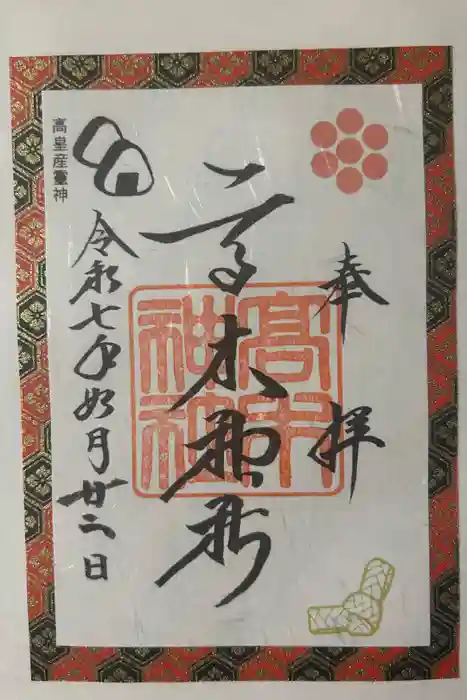 奉拝
高木神社
高木
神社
高皇産靈神
令和七年如月廿二日